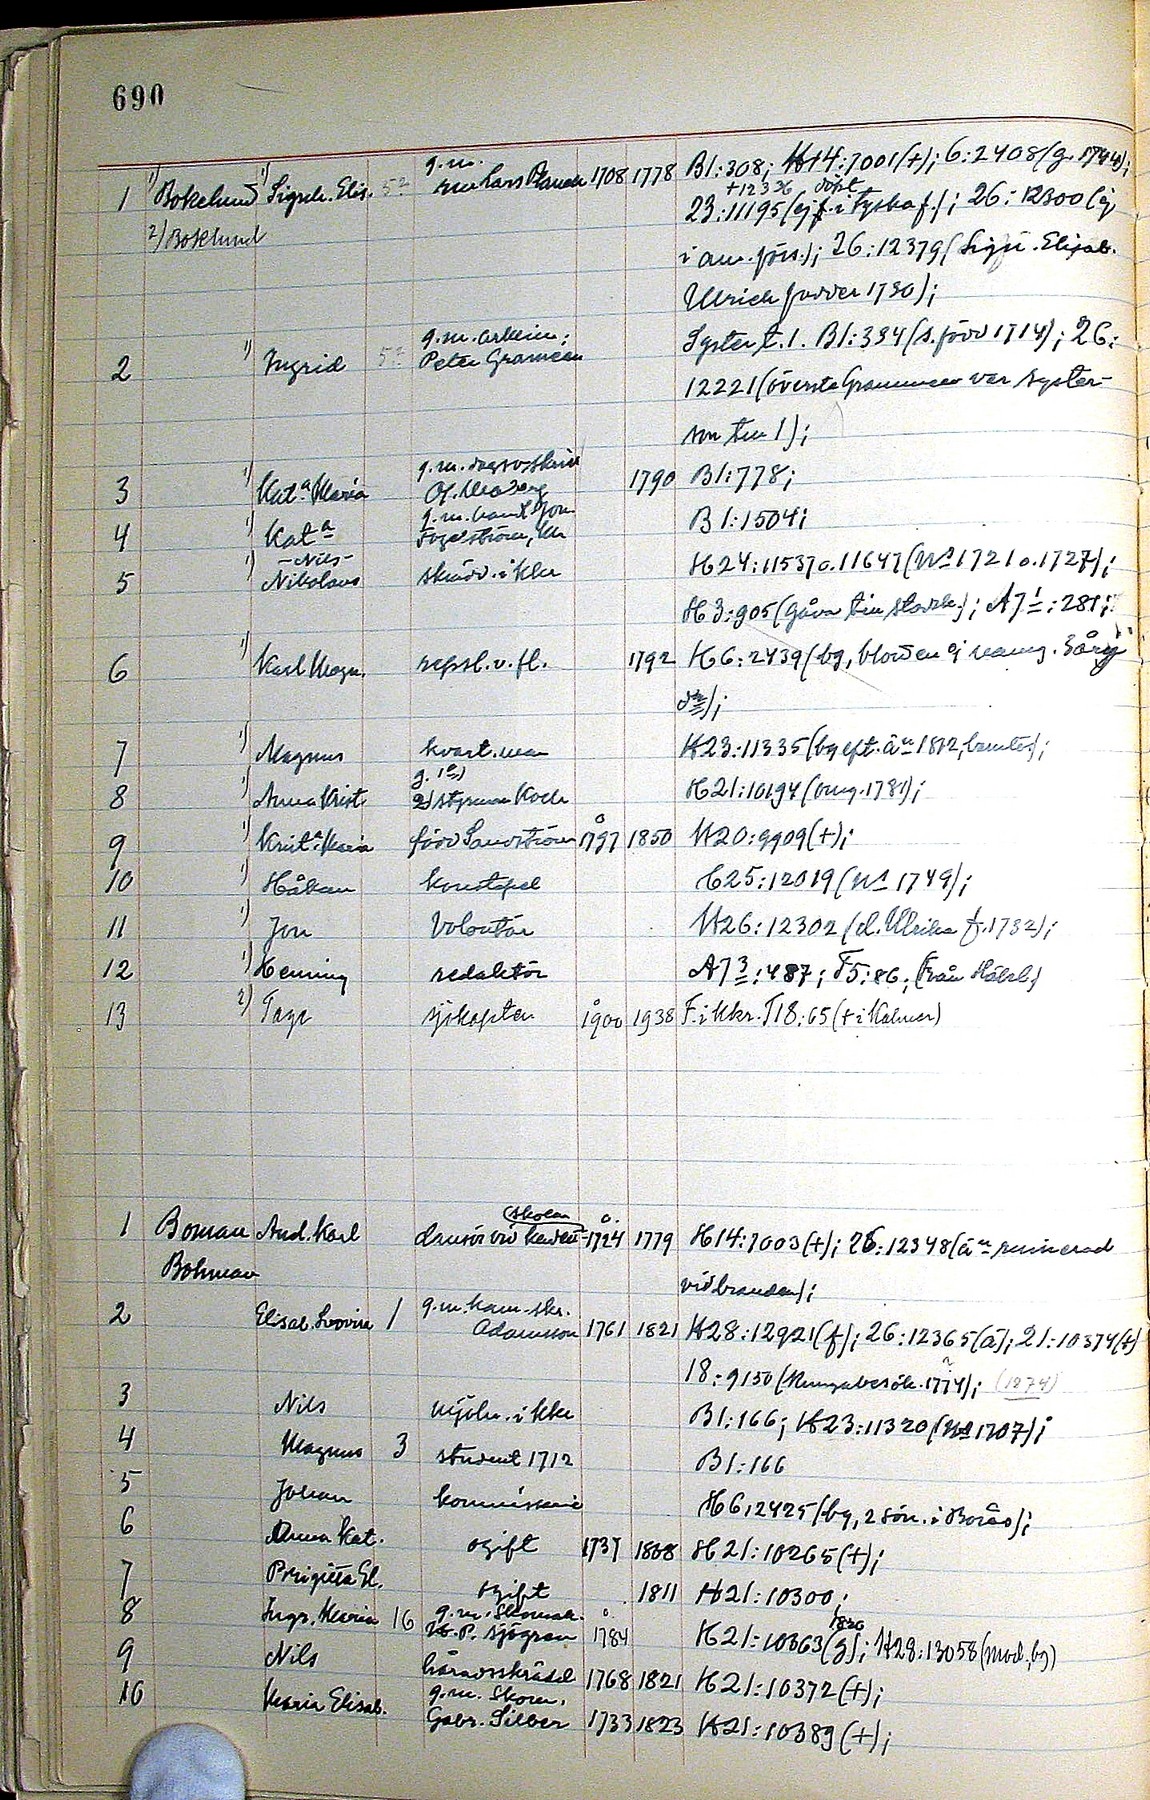 690
1 1) Bokelund 1) Sigr. Elis. 5? g.m. Lars 1708 1778 B1:308; H14:7001(+); 6:2408(g. 1744);
2) Boklund +12336 döpt
23:11195(ej f. i tyska f.); 26:12300(ej
i am. förs.); 26:12379(Sigr. Elisab.
Ulrich fadder 1730);
2 1) Ingrid 5? g.m. Peter Grameen Syster t. 1. B1:334(s. född 1714); 26:
12221(överste Grammeen var syster-
son till 1);
3 1) Kat.a Maria g.m. 1790 B1:778;
4 1) Kat.a g.m. B1:1504;
5 1) -Nils- Nikolaus skräd. i Kkr H24:11537 o. 11647(Nº 1721 o. 1727);
H3:905(gåva till stadsk.); A7 1:281;
6 1) Karl Magn. repsl. v. fl. 1792 H6:2439(bg, ej
);
7 1) Magnus kvart.man H23:11335(bg eft. än 1812);
8 1) Anna Krist. g. 1º) 2) styrman Koch H21:10194(omg. 1781);
9 1) Krist.a Maria född Sandström 1797 1850 H20:9909(+);
10 1) Håkan konstapel C25:12019(Nº 1749);
11 1) Jon Volontär H26:12302(d. Ulrika f. 1732);
12 1) Henning redaktör A7 3:487; T5:86; (från Hälsb.)
13 2) Tage sjökapten 1900 1938 F. i Kkr. T18:65(+ i Kalmar)
1 Boman And. Karl (skolan 1724 1779 H14:7003(+); 26:12348(än ruinerad
Bohman vid branden);
2 Elisab. Lovisa 1 g.m. kam.skr. Adamsson 1761 1821 H28:12921(f); 26:12365(ä); 21:10374(+)
18:9150(Kungabesök. 1774); (1274)
3 Nils mjöln. i Kkr B1:166; H23:11320(Nº 1707);
4 Magnus 3 student 1712 B1:166
5 Johan kommissarie H6:2425(bg, 2 sön. i Borås);
6 Anna Kat. ogift 1737 1808 H21:10265(+);
7 Brigitta El. ogift 1811 H21:10300;
8 Ingr. Maria 16 g.m. Skomak. N.P. Sjögren 1784 H21:10363(g); 1826 H28:13058(mod, bg)
9 Nils 1768 1821 H21:10372(+);
10 Maria Elisab. g.m. Skom. Gabr. Silber 1733 1823 H21:10389(+);